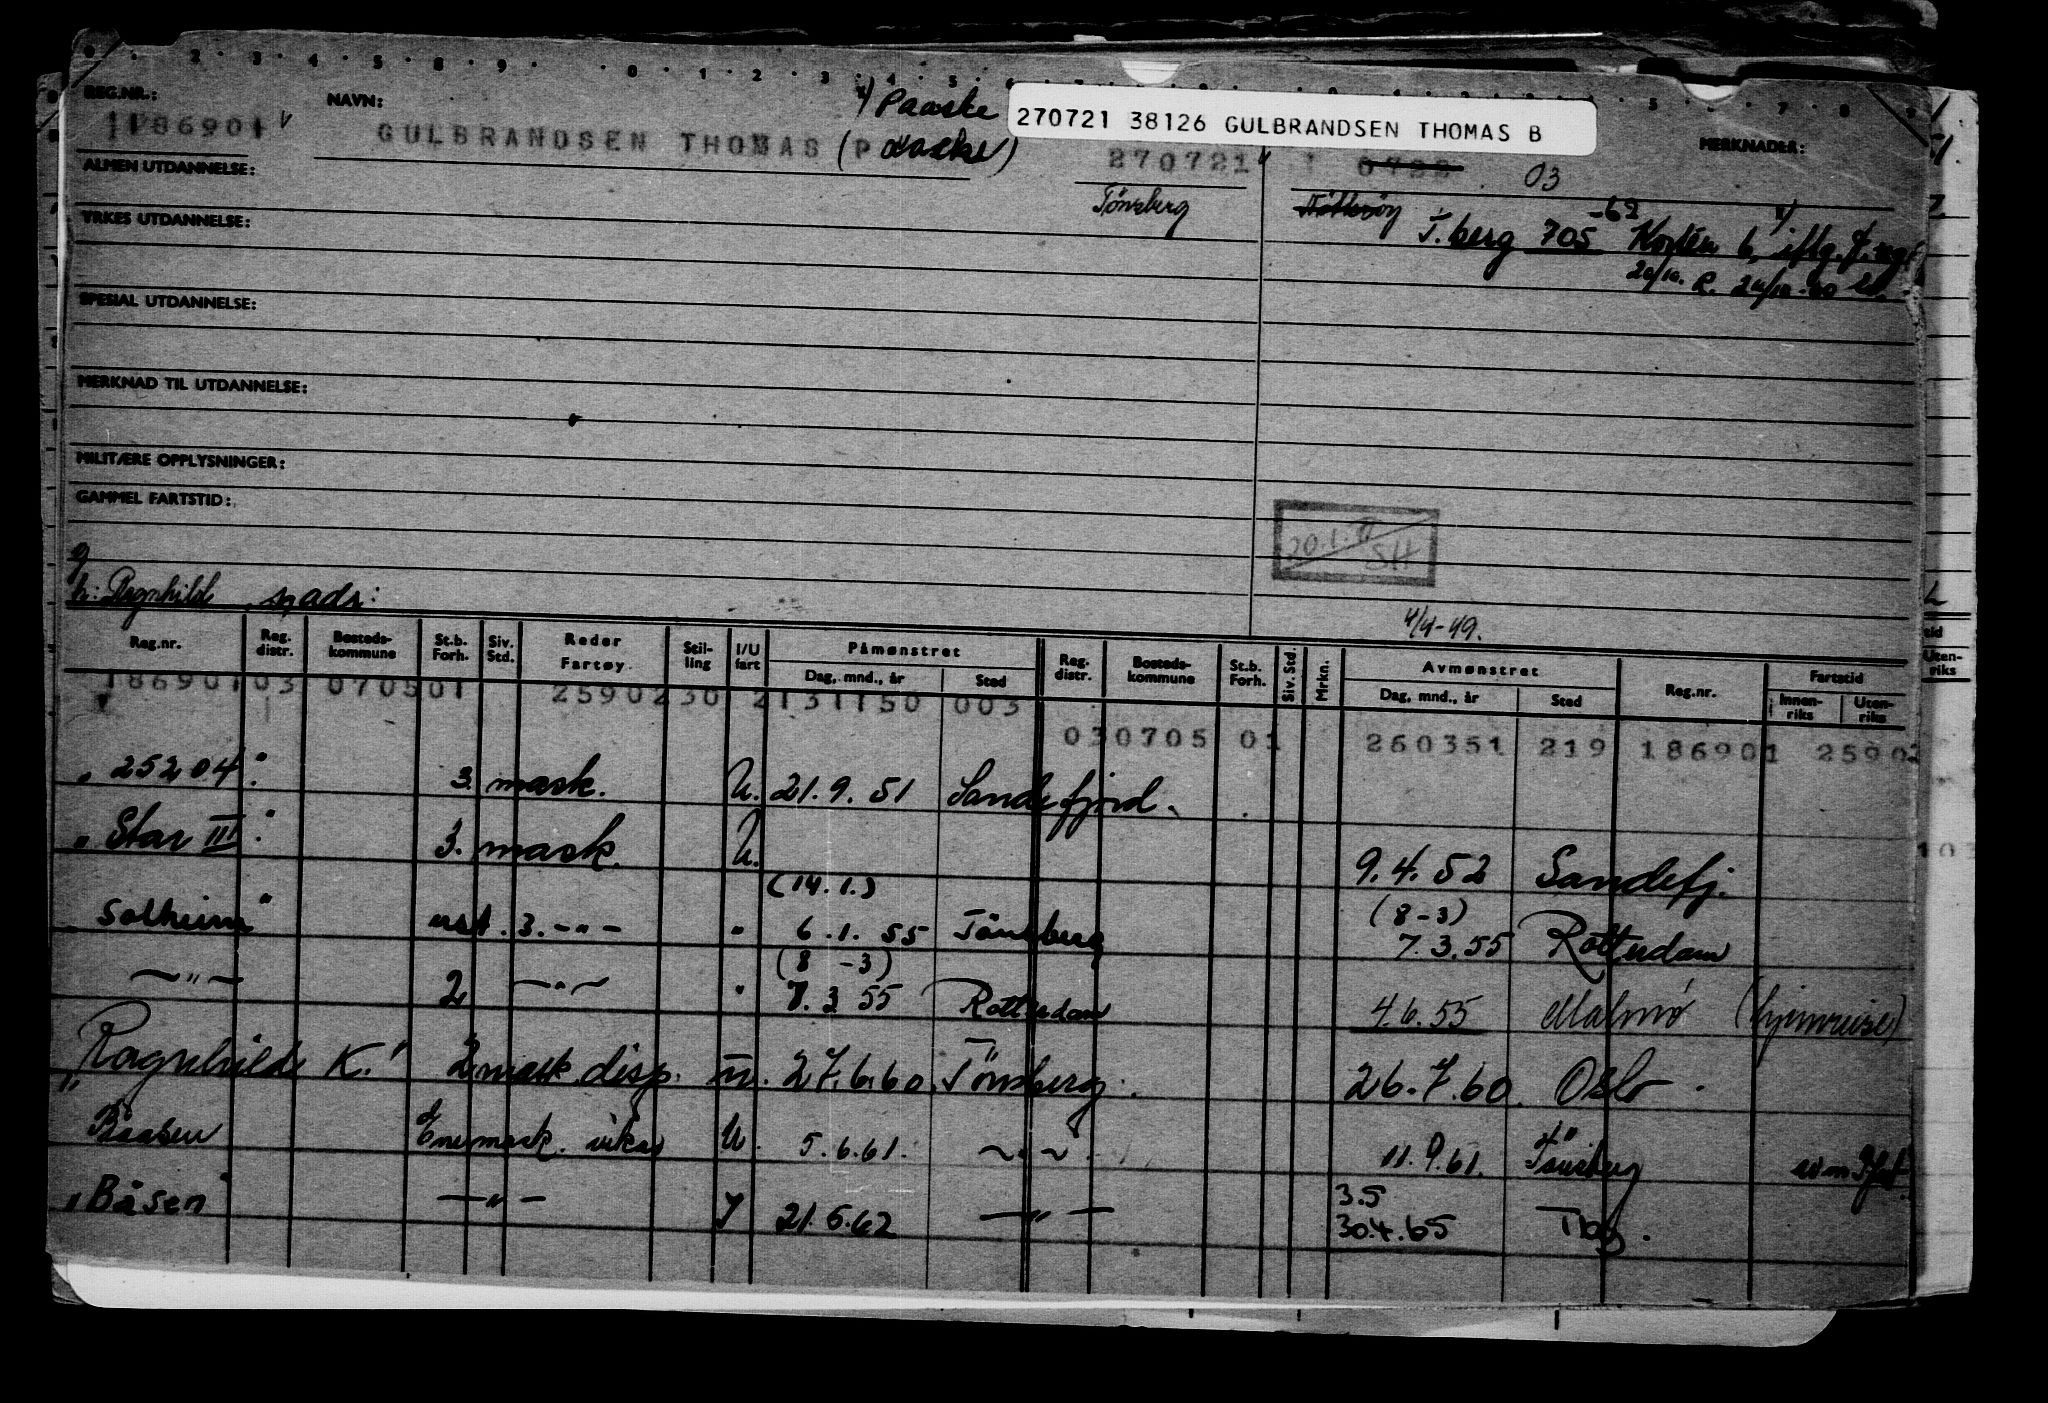 270721 38126 GULBRANDSEN THOMAS B
REG.NR.: NAVN: x) Paaske MERKNADER:
186901 v GULBRANDSEN THOMAS (Paaske) 270721 03
ALMEN UTDANNELSE: Tönsberg
YRKES UTDANNELSE: T.berg 705 -62
20/10. R. 24/10-60
SPESIAL UTDANNELSE:
MERKNAD TIL UTDANNELSE:
MILITÆRE OPPLYSNINGER:
GAMMEL FARTSTID:
SH
4/4-49.
Reg.nr. Reg. distr. Bosteds-kommune St.b. Forh. Siv. Std. Reder Fartøy. Stil-ling I/U fart Påmønstret Dag, mnd., år Sted Reg. distr. Bosteds-kommune St.b. Forh. Siv. Std. Mrkn. Avmønstret Dag, mnd., år Sted Reg.nr. Fartstid Innen-riks Uten-riks
186901 03 0705 01 2590230 2131150 003
030705 01 260351 219 186901 2590
"25204" 3. mask. U. 21.9.51 Sandefjord.
"Star III" 3. mask. U. 9.4.52 Sandefj.
(14.1.) (8-3)
"Solheim" ass. 3. -"- " 6.1.55 Tönsberg 7.3.55 Rotterdam
(8-3)
-"- 2 -"- " 7.3.55 Rotterdam 4.6.55 Malmö (hjemreise)
"Ragnhild K." 2 mask. disp. U. 27.6.60 Tönsberg. 26.7.60 Oslo.
Baasen Enemask. vikar U. 5.6.61. -"- 11.9.61. Tönsberg
3.5
"Båsen" -"- I 21.6.62 -"- 30.4.65 Tbg.